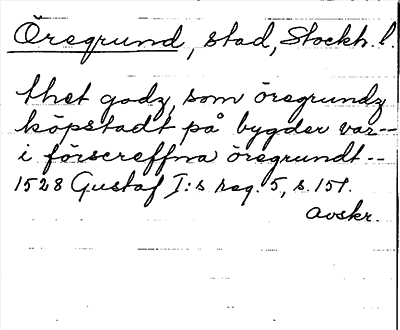 Öregrund, stad, Stockh. l.
thet godz, som öregrundz
köpstadt på bygder var--
i förscreffna öregrundt--
1528 Gustaf I:s reg. 5, s. 151.
avskr.